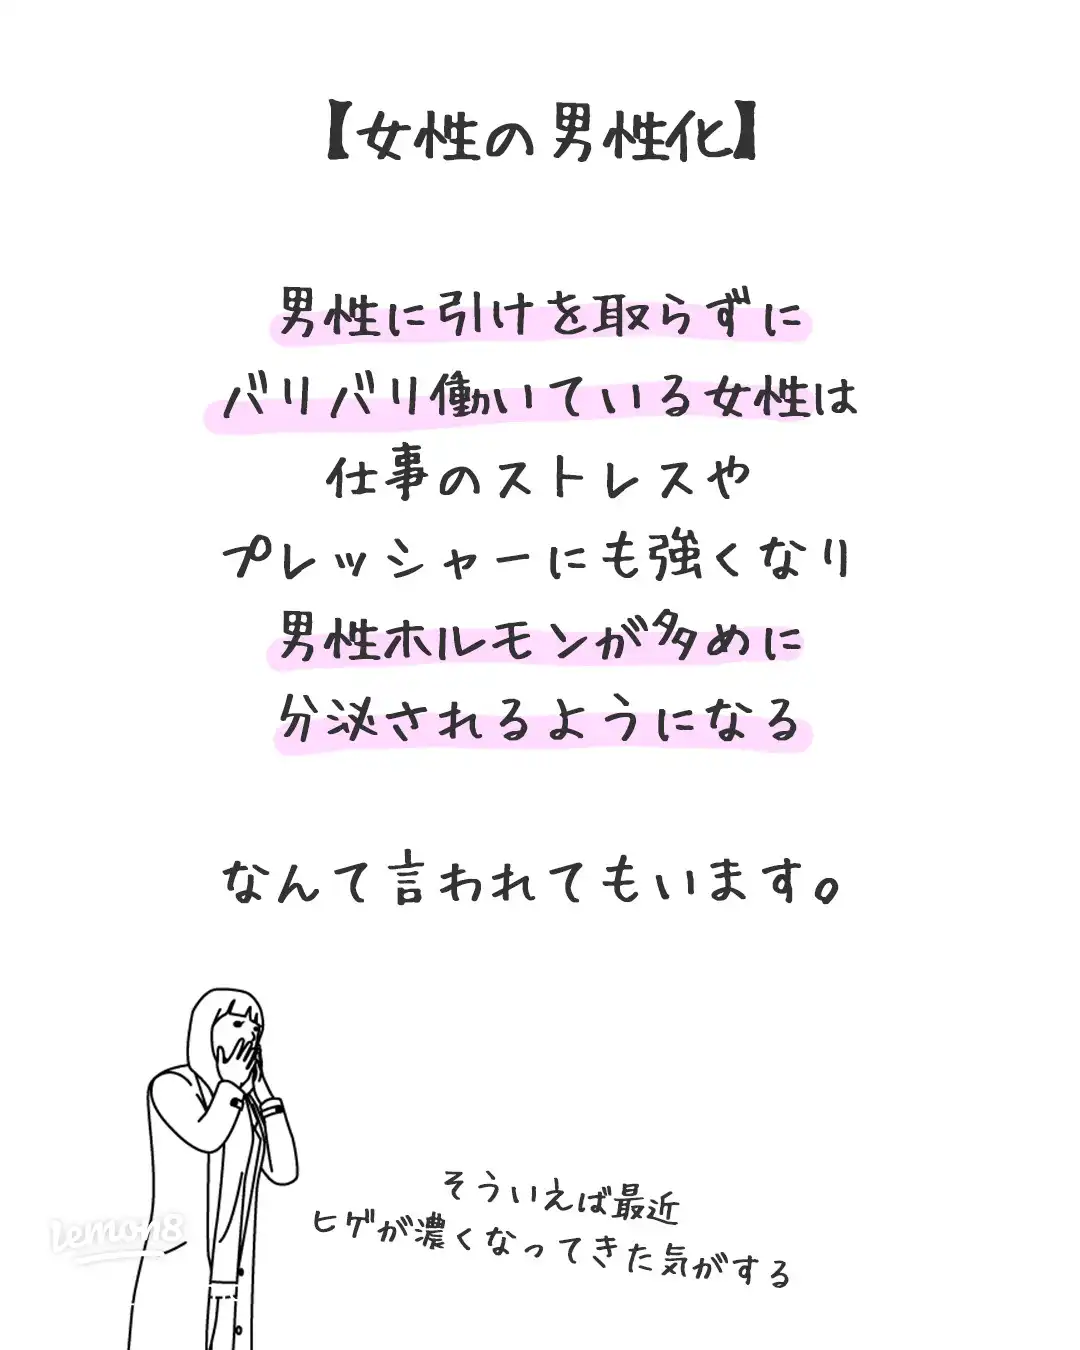 【女性の男性化】
男性に引けを取らずに
バリバリ働いている女性は
仕事のストレスや
プレッシャーにも強くなり
男性ホルモンが多めに
分泌されるようになる
なんて言われてもいます。
そういえば最近
ヒゲが濃くなってきた気がする
lemon8